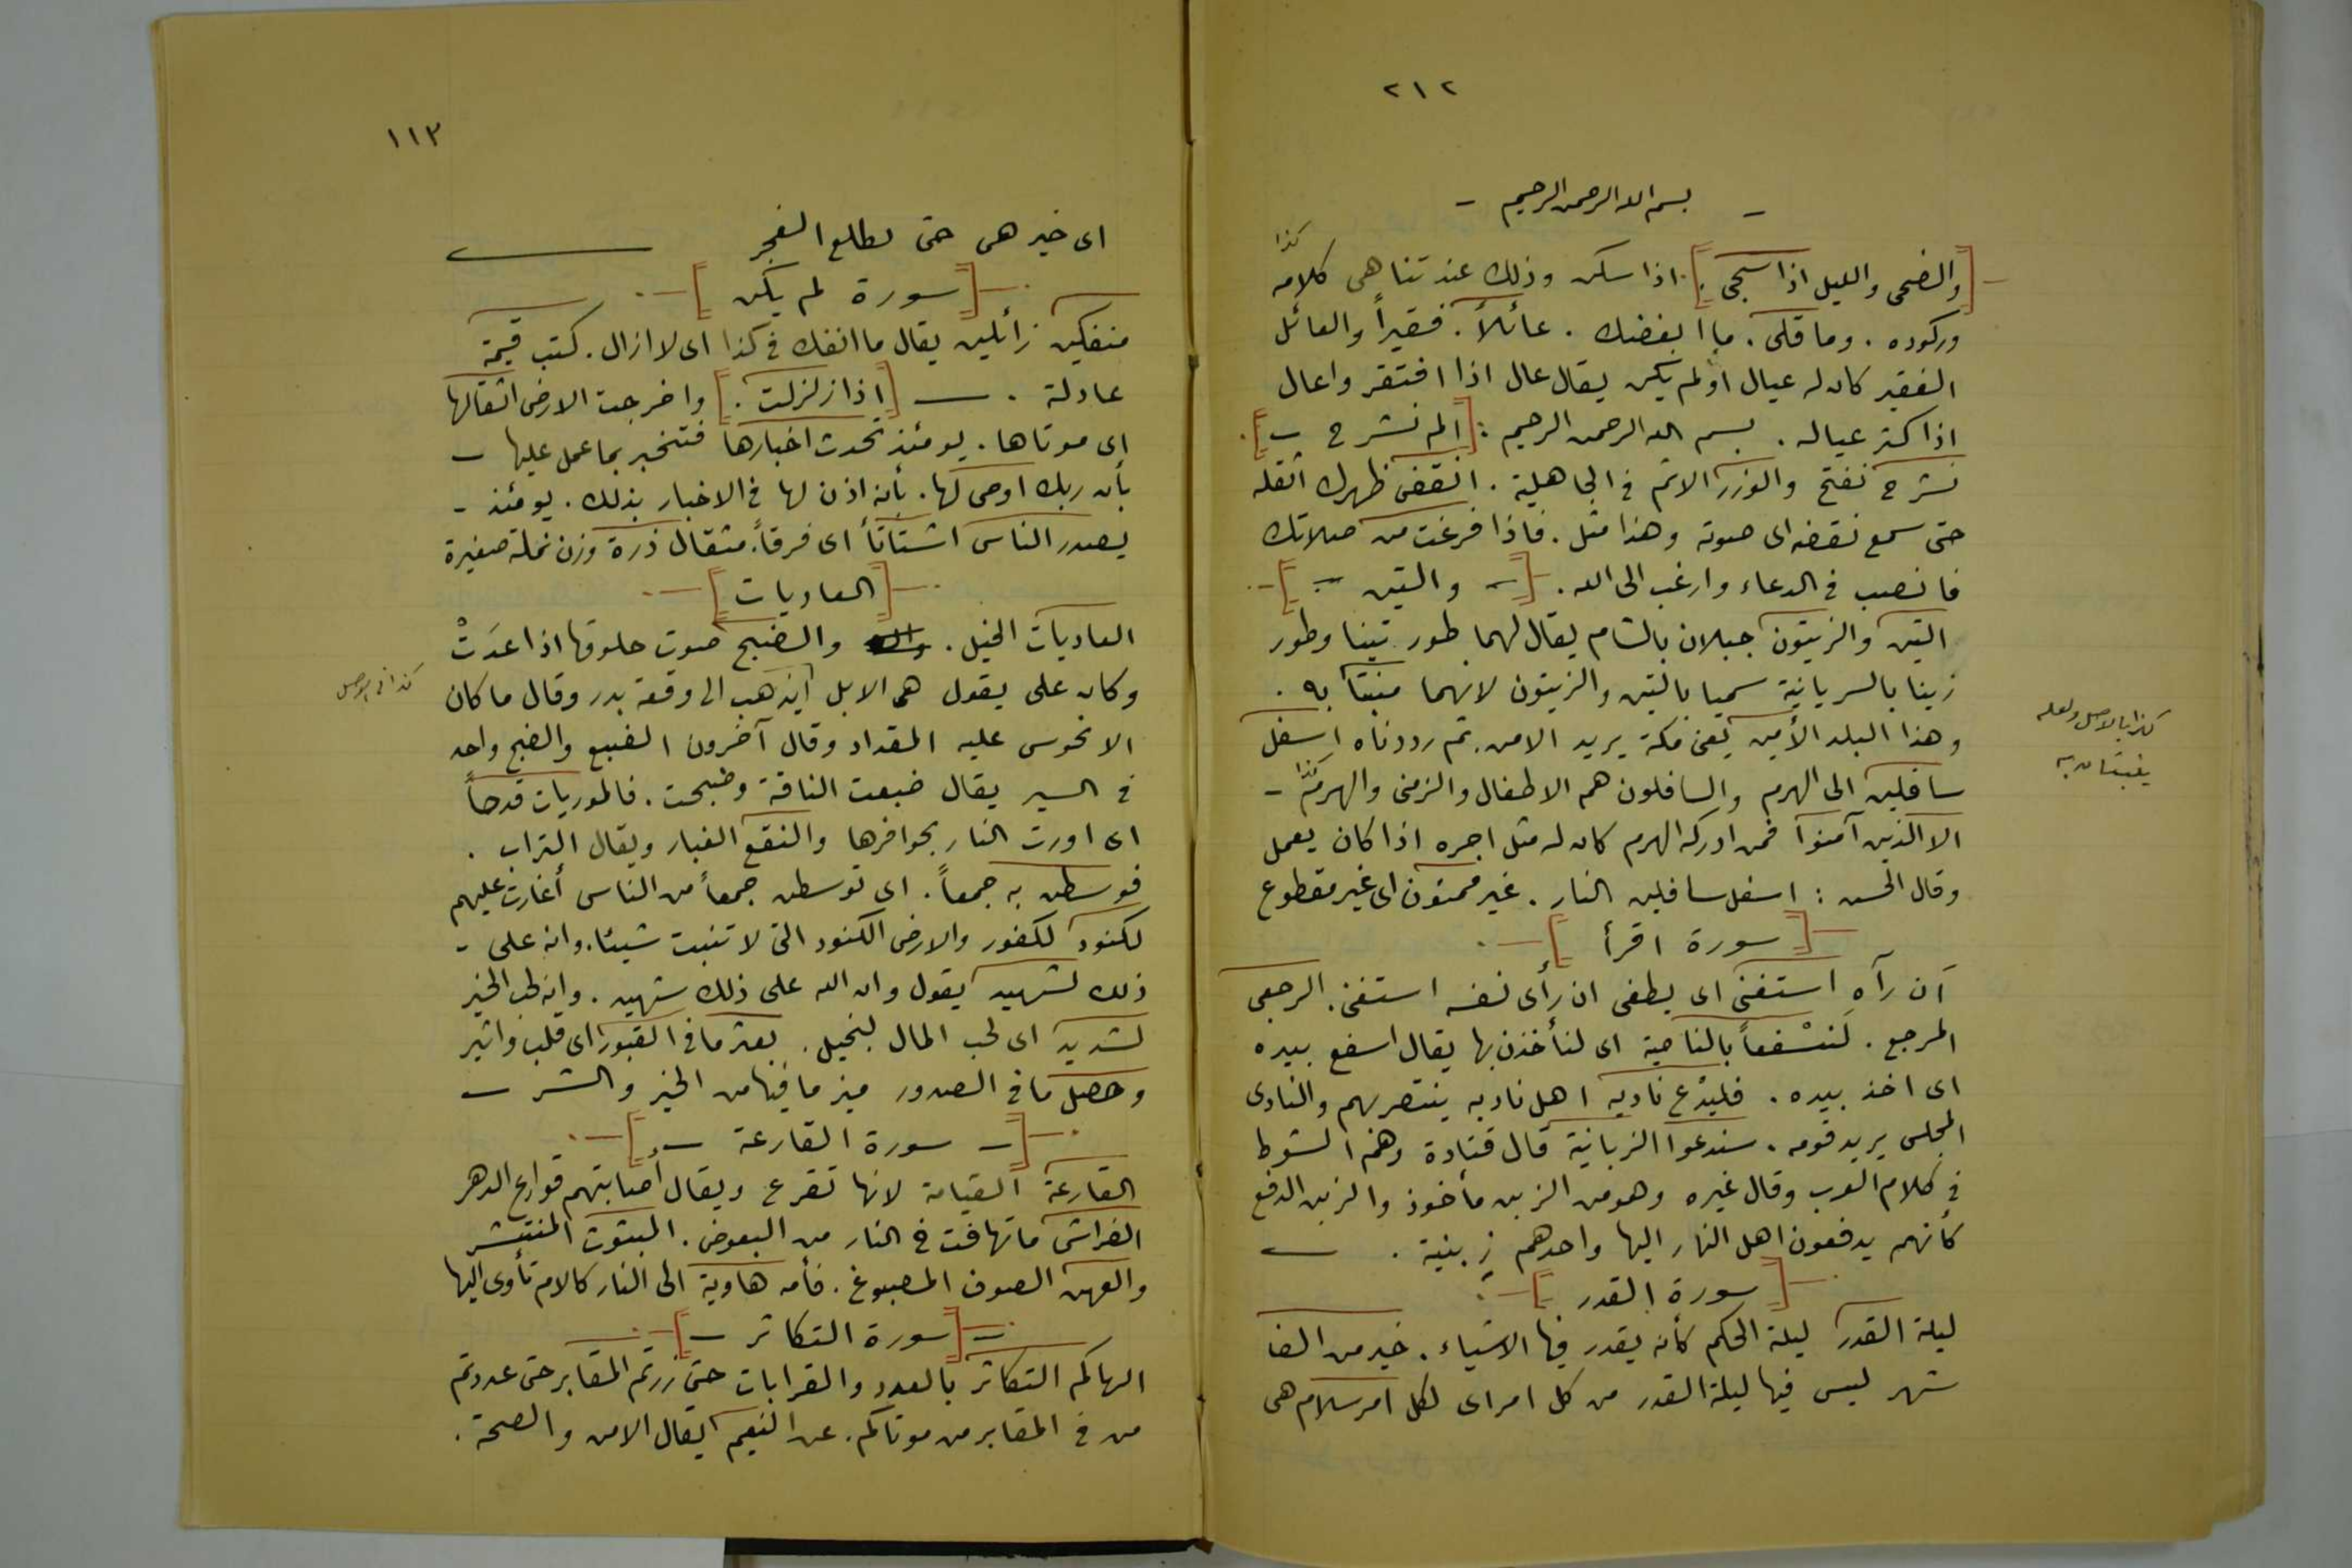 ٢١٢
- بسم الله الرحمن الرحيم -
كذا
[والضحى والليل اذا سجى.] اذا سكن وذلك عند تناهى كلامه
وركوده . وما قلى . ما ابغضك . عائلاً . فقيراً والعائل
الفقير كان له عيال أو لم يكن يقال عال اذا افتقر واعال
اذا كثر عياله . بسم الله الرحمن الرحيم : [الم نشرح]
نشرح نفتح والوزر الاثم فى الجاهلية . انقض ظهرك اثقله
حتى سمع نقضه اى صوته وهذا مثل . فاذا فرغت من صلاتك
فانصب فى الدعاء وارغب الى الله . [ - والتين - ]
التين والزيتون جبلان بالشام يقال لهما طور تينا وطور
زينا بالسريانية سميا بالتين والزيتون لانهما منبتا به .
وهذا البلد الأمين يعنى مكة يريد الامن . ثم رددناه اسفل
سافلين الى الهرم والسافلون هم الاطفال والزمنى والهرم كذا -
الا الذين آمنوا فمن ادركه الهرم كان له مثل اجره اذا كان يعمل
وقال الحسن : اسفل سافلين النار . غير ممنون اى غير مقطوع
[ سورة اقرأ ]
اَن رآه استغنى اى يطغى ان رأى نفسه استغنى . الرجعى
المرجع . لَنسْفعاً بالناصية اى لنأخذن بها يقال اسفع بيده
اى اخذ بيده . فليدْع ناديه اهل ناديه ينتصر بهم والنادى
المجلس يريد قومه . سندعوا الزبانية قال قتادة وهم الشرط
فى كلام العرب وقال غيره وهو من الزبن مأخوذ والزبن الدفع
كأنهم يدفعون اهل النار اليها واحدهم زِبنية .
[ سورة القدر ]
ليلة القدر ليلة الحكم كأنه يقدر فيها الاشياء . خير من الف
شهر ليس فيها ليلة القدر من كل امر اى لكل امر سلام هى
كذا بالاصل ولعله
ينبتان به
١١٣
اى خير هى حتى مطلع الفجر
[ سورة لم يكن ]
منفكين زائلين يقال ما انفك فى كذا اى لا ازال . كتب قيمة
عادلة . - [اذا زلزلت .] واخرجت الارض اثقالها
اى موتاها . يومئذ تحدث اخبارها فتخبر بما عمل عليها -
بأن ربك اوحى لها . بأنه اذن لها فى الاخبار بذلك . يومئذ -
يصدر الناس اشتاتاً اى فرقاً . مثقال ذرة وزن نملة صغيرة
[ العاديات ]
العاديات الخيل . والضبح صوت حلوقها اذا عَدَتْ
وكان على يقول هى الابل ايذهب الى وقعة بدر وقال ما كان
الا نحوس عليه المقداد وقال آخرون الضبع والضبح واحد
فى السير يقال ضبعت الناقة وضبحت . فالموريات قدحاً
اى اورت النار بحوافرها والنقع الغبار ويقال التراب .
فوسطن به جمعاً . اى توسطن جمعاً من الناس أغارت عليهم
لكنود لكفور والارض الكنود التى لا تنبت شيئا . وانه على -
ذلك لشهيد يقول وان الله على ذلك شهيد . وانه لحب الخير
لشديد اى لحب المال لبخيل . بعثر ما فى القبور اى قلب واثير
وحصل ما فى الصدور ميز ما فيها من الخير والشر -
[ - سورة القارعة - ]
القارعة القيامة لانها تقرع ويقال أصابتهم قوارع الدهر
الفراش ما تهافت فى النار من البعوض . المبثوث المنتشر
والعهن الصوف المصبوغ . فأمه هاوية الى النار كالام تأوى اليها
[ سورة التكاثر - ]
الهاكم التكاثر بالعدد والقرابات حتى زرتم المقابر حتى عددتم
من فى المقابر من موتاكم . عن النعيم يقال الامن والصحة .
كذا فى الاصل